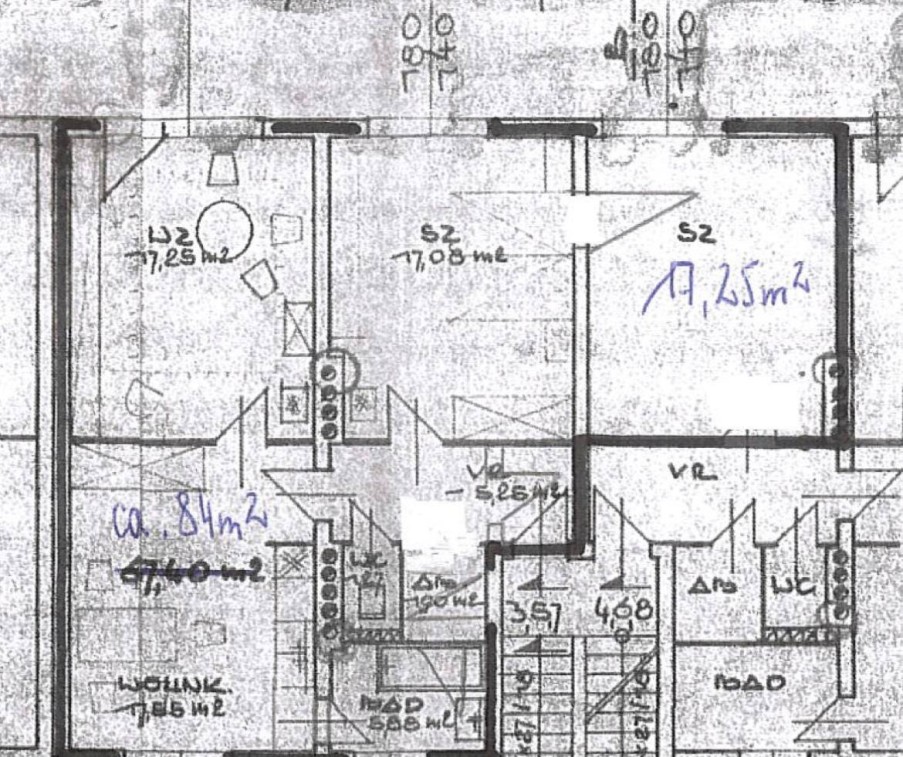 180
140
B
180
140
WZ
17,25 m2
SZ
17,08 m2
SZ
17,25m²
VR
5,25 m2
VR
ca. 84m²
67,40 m2
WC
1,27
AR
1,90 m2
3,57
4,68
AR
WC
WOHNK.
17,55 m2
BAD
5,88 m2
BAD